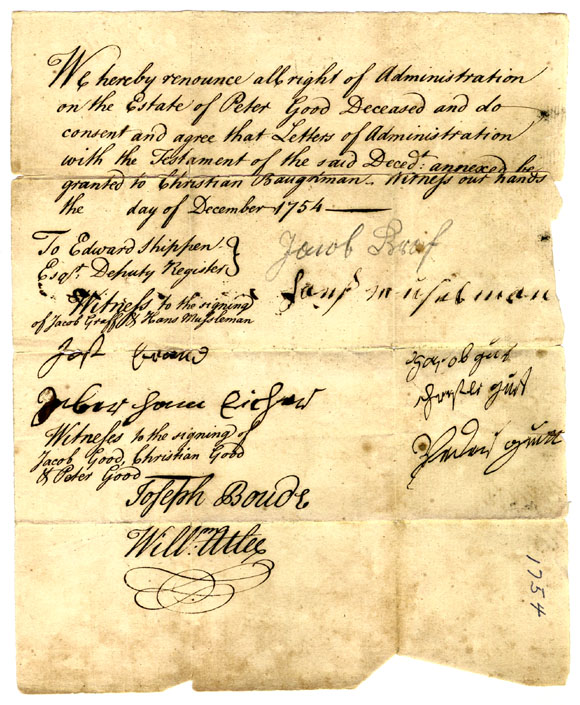 We hereby renounce all right of Administration
on the Estate of Peter Good Deceased and do
consent and agree that Letters of Administration
with the Testament of the said Deced.t annexed be
granted to Christian Baughman. Witness our hands
the day of December 1754
To Edward Shippen
Esq.r Deputy Register
Jacob Graf
Hans Muselman
Witness to the signing
of Jacob Graff & Hans Mussleman
Jost
Jacob gut
Abersham Eicher
Christli gut
Witness to the signing of
Jacob Good, Christian Good
& Peter Good
Peder gutt
Joseph Boude
Will.m Atlee
1754